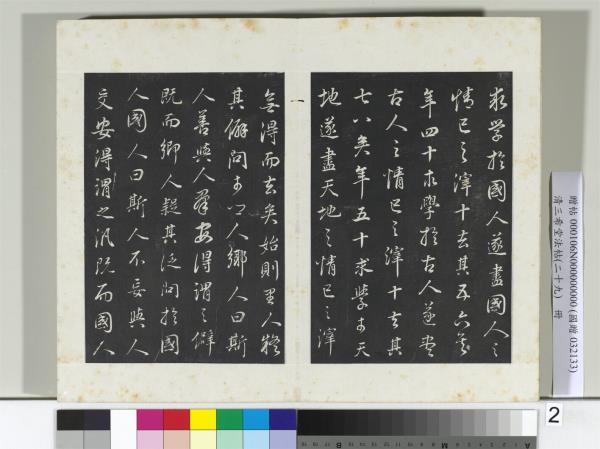 求學於國人遂盡國人之
情己之滓十去其五六矣
年四十求學於古人遂盡
古人之情己之滓十去其
七八矣年五十求學於天
地遂盡天地之情己之滓
無得而去矣始則里人疑
其僻問於鄉人鄉人曰斯
人善與人群安得謂之僻
既而鄉人疑其泛問於國
人國人曰斯人不妄與人
交安得謂之汎既而國人
贈帖 000106N000000000 (國贈 032133)
清三希堂法帖(二十九) 冊
2